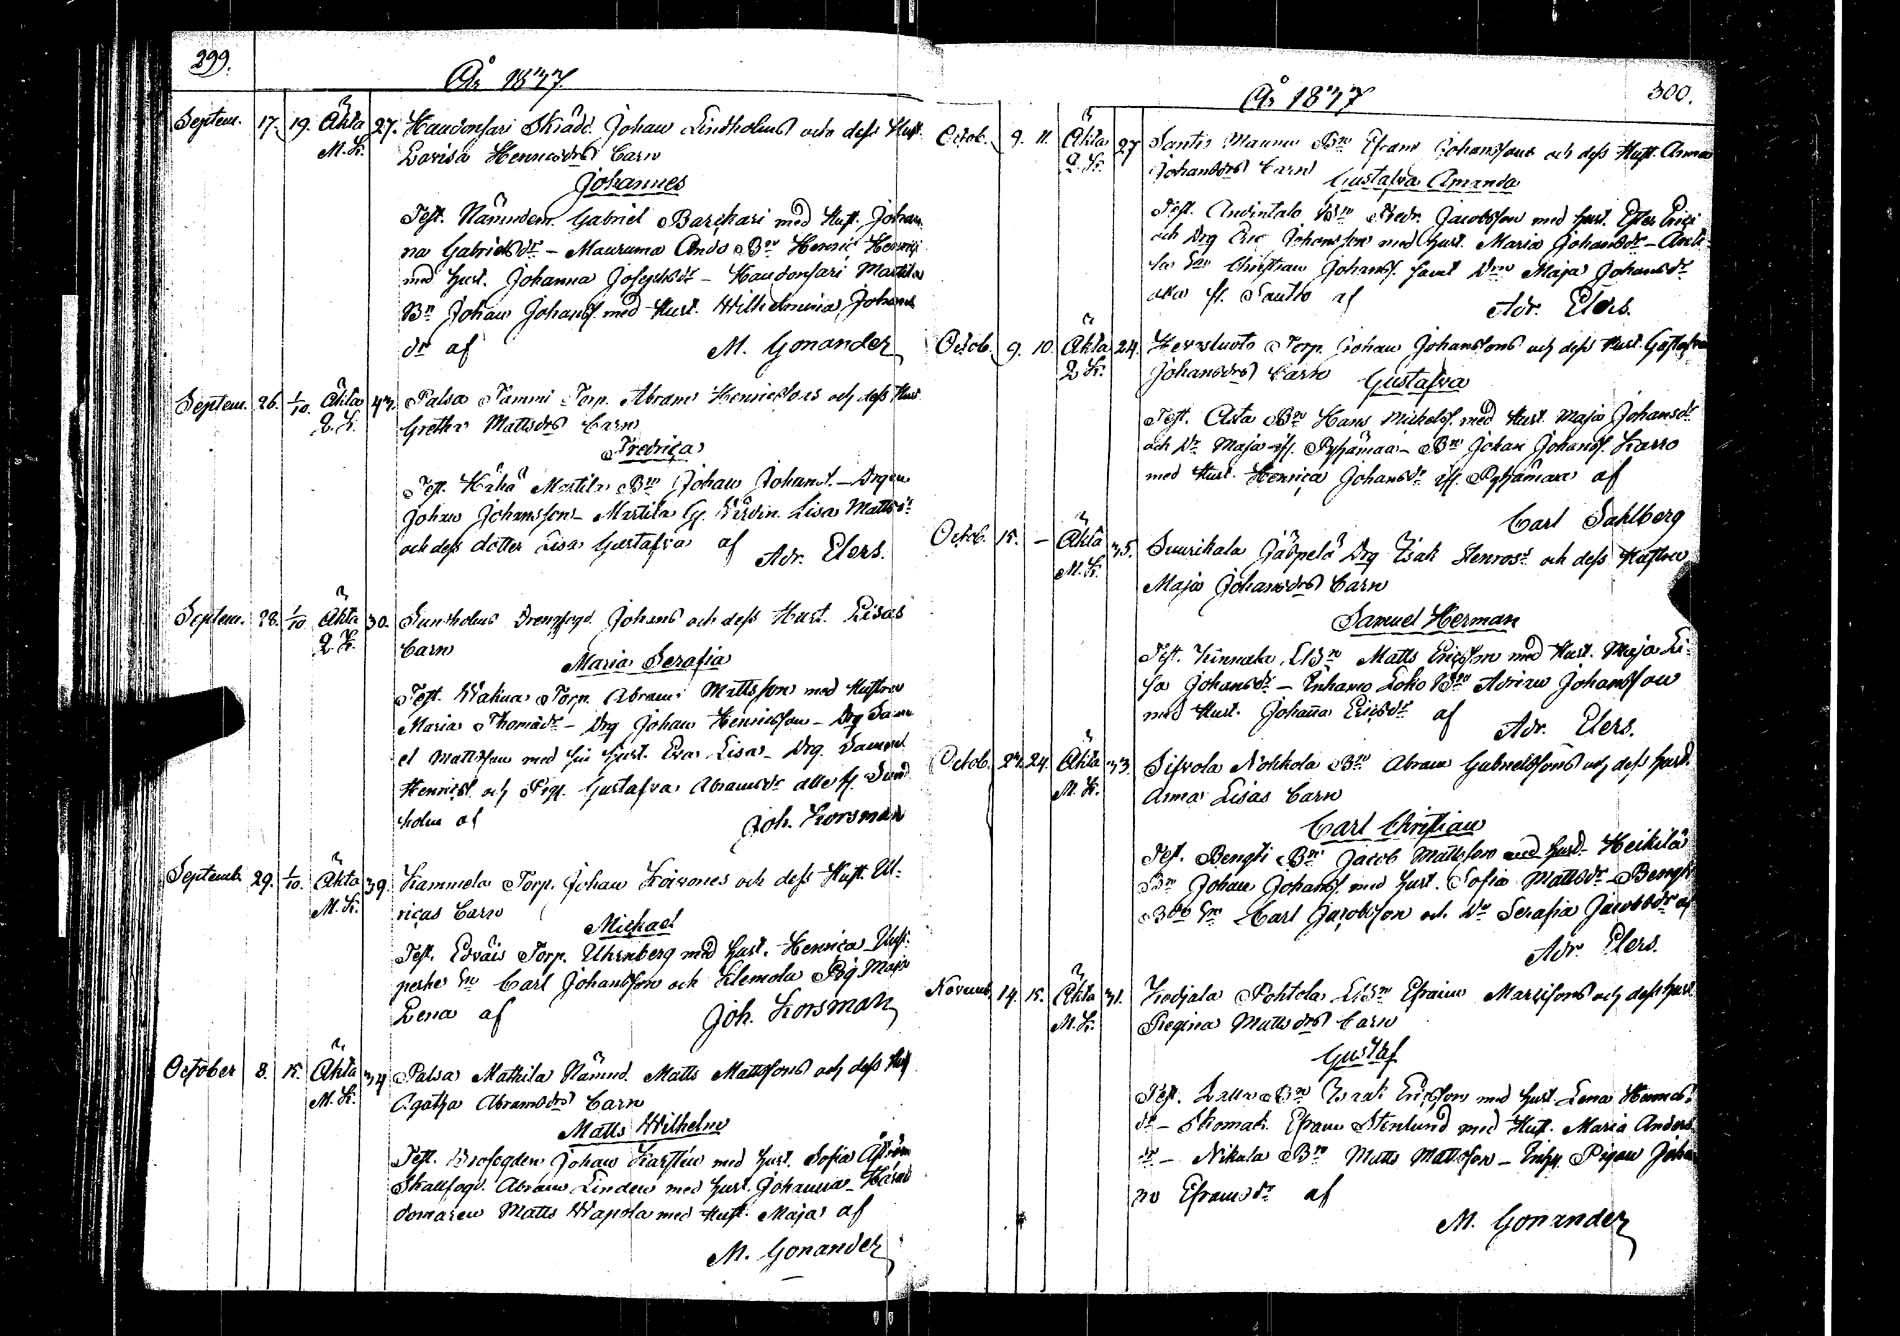 299.
År 1837.
Septem. 17. 19. Äkta 27. Haudonsari Skrädd. Johan Lindholms och dess Hust.
M.K. Lovisa Henricsdrs Barn
Johannes
Test. Nämndem. Gabriel Barckari med Hust. Johan
na Gabrielsdr – Mauruma Ando Bn Henric Henrics
med hust. Johanna Josephsdr – Haudonsari Mattila
Bn Johan Johans. med Hust. Wilhelmina Johans
dr af M. Gonander
Septem. 26. 1/10. Äkta 43. Palsa Tammi Torp. Abram Henricssons och dess Hust
Q.K. Gretha Mattsdrs Barn
Fredrica
Test. Hähä Mattila Bn Johan Johans. – Drgen
Johan Johansson – Mattila Lisa Mattsdr
och dess dotter Lisa Gustafva af Adr. Elers.
Septem. 28. 1/10 Äkta 30. Sunnholms Drengfogd. Johans och dess Hust. Lisas
Q.K. Barn
Maria Serafia
Test. Wähua Torp. Abram Mattsson med Hustru
Maria Thomasdr – Drg Johan Henricsson – Drg Samu
el Mattsson med sin hust. Eva Lisa – Drg. Samuel
Henrics. och Pig. Gustafva Abramsdr alla fr. Sund
holm af Joh. Korsman
Septemb. 29. 1/10. Äkta 39. Kammela Torp. Johan Koivones och dess Hust. Ul-
M.K. ricas Barn
Michael
Test. Edväis Torp. Uhrnberg med hust. Henrica
Carl Johansson och Klemola Pig. Maja
Lena af Joh. Korsman
October 8. 15. Äkta 34 Palsa Mathila Nämnd. Matts Mattssons och dess Hust
M.K. Agatha Abramsdrs Barn
Matts Wilhelm
Test. Brofogden Johan Karstén med hust. Sofia Åström
Skallfogd. Abram Linden med hust. Johanna – Härads
domaren Matts Wapola med Hust. Maja af
M. Gonander
År 1837 300.
Octob. 9. 11. Äkta 27 Santio Maunu Bn Efraim Johanssons och dess Hust. Anna
Q.K. Johansdrs Barn
Gustafva Amanda
Test. Anvintalo Bn Fredr. Jacobsson med hust. Ester Erici
och Drg Eric Johansson med hust. Maria Johansdr – Antt-
la Christian Johans. samt Maja Johansdr
alla fr. Santio af Adr. Elers.
Octob. 9. 10. Äkta 24. Hervoluoto Torp. Johan Johanssons och dess Hust. Gustafva
Q.K. Johansdrs Barn
Gustafva
Test. Arta Bn Hans Michels. med Hust. Maja Johansdr
och Dr Maja ifr. Pyhämaa – Bn Johan Johans. Karro
med Hust. Henrica Johansdr ifr. Pyhämaa af
Carl Sahlberg
Octob. 15. – Äkta 35. Suurikala Jäspelä Drg Isak Stenros och dess Hustru
M.K. Maja Johansdrs Barn
Samuel Herman
Test. Kinnala Bn Matts Ericsson med Hust. Maja Li-
sa Johansdr – Inhamo Loko Bn Adrian Johansson
med Hust. Johanna Ericsdr af Adr. Elers.
Octob. 23. 24. Äkta 33. Sifvola Nohkola Bn Abram Gabrielssons och dess hust.
M.K. Anna Lisas Barn
Carl Christian
Test. Bengti Bn Jacob Mattsson med hust. Heikilä
Bn Johan Johans. med hust. Sofia Mattsdr – Bengti
Carl Jacobsson och Serafia Jacobsdr af
Adr. Elers.
Novemb. 14. 15. Äkta 31. Kodjala Pohtola Bn Efraim Marcissons och dess hust
M.K. Regina Mattsdrs Barn
Gustaf
Test. Bn Isak Ericsson med hust. Lena Henrics-
dr – Skomak. Efraim Stenlund med Hust. Maria Anders
dr – Nikula Bn Matts Mattsson – Pigan Johan
na Efraimsdr af
M. Gonander